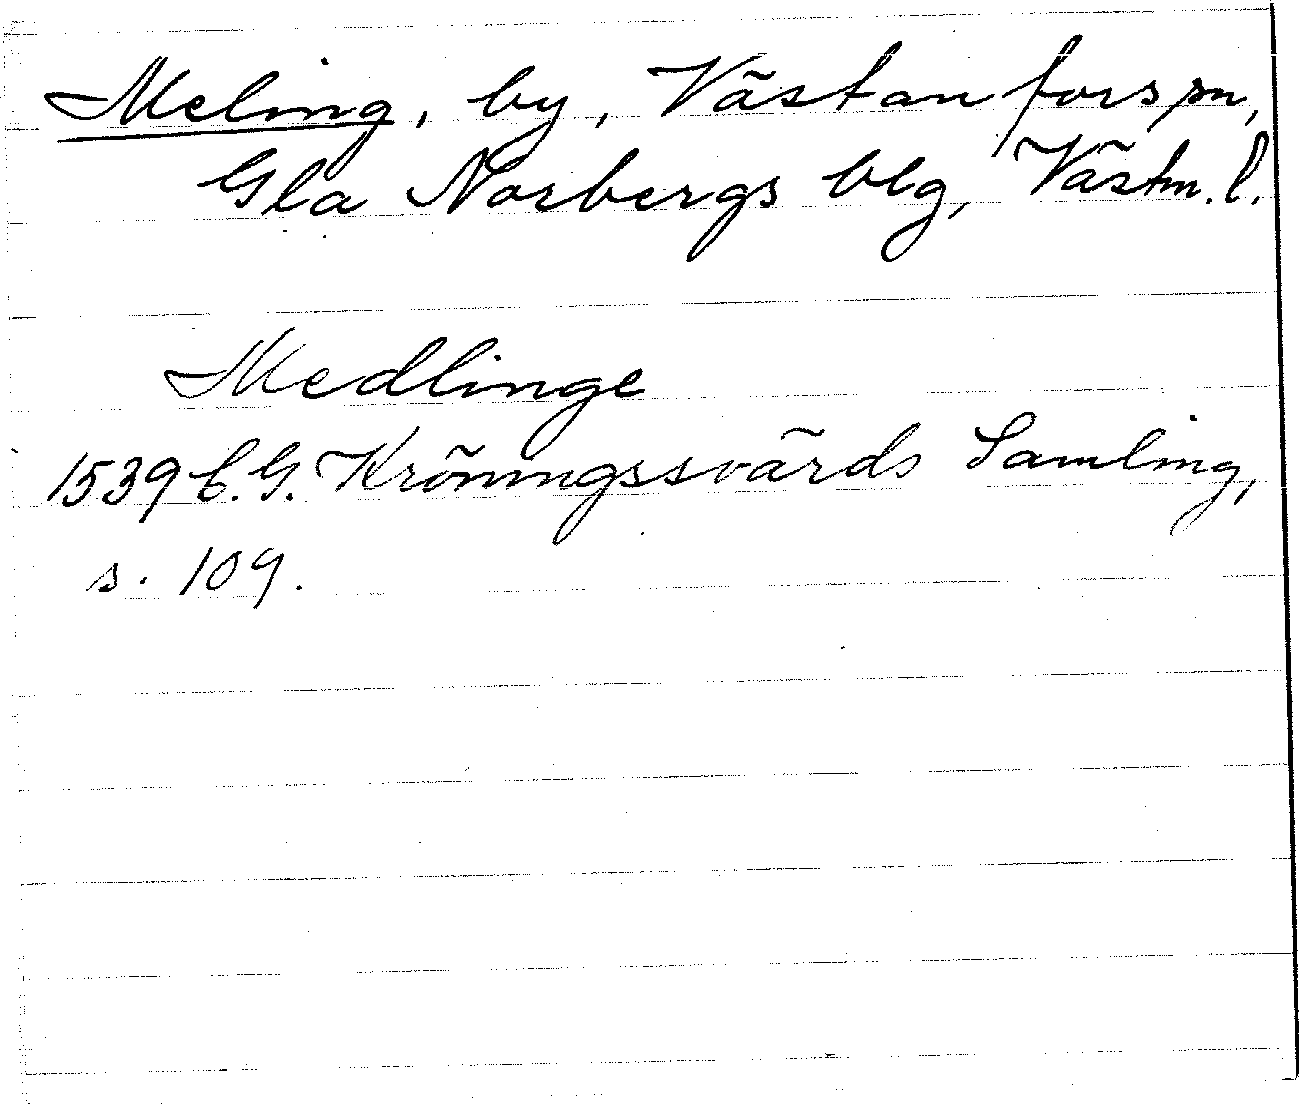 Meling, by, Västanfors sn,
Gla Norbergs blg, Västm. l.
Medlinge
1539 C. G. Kröningssvärds Samling,
s. 109.